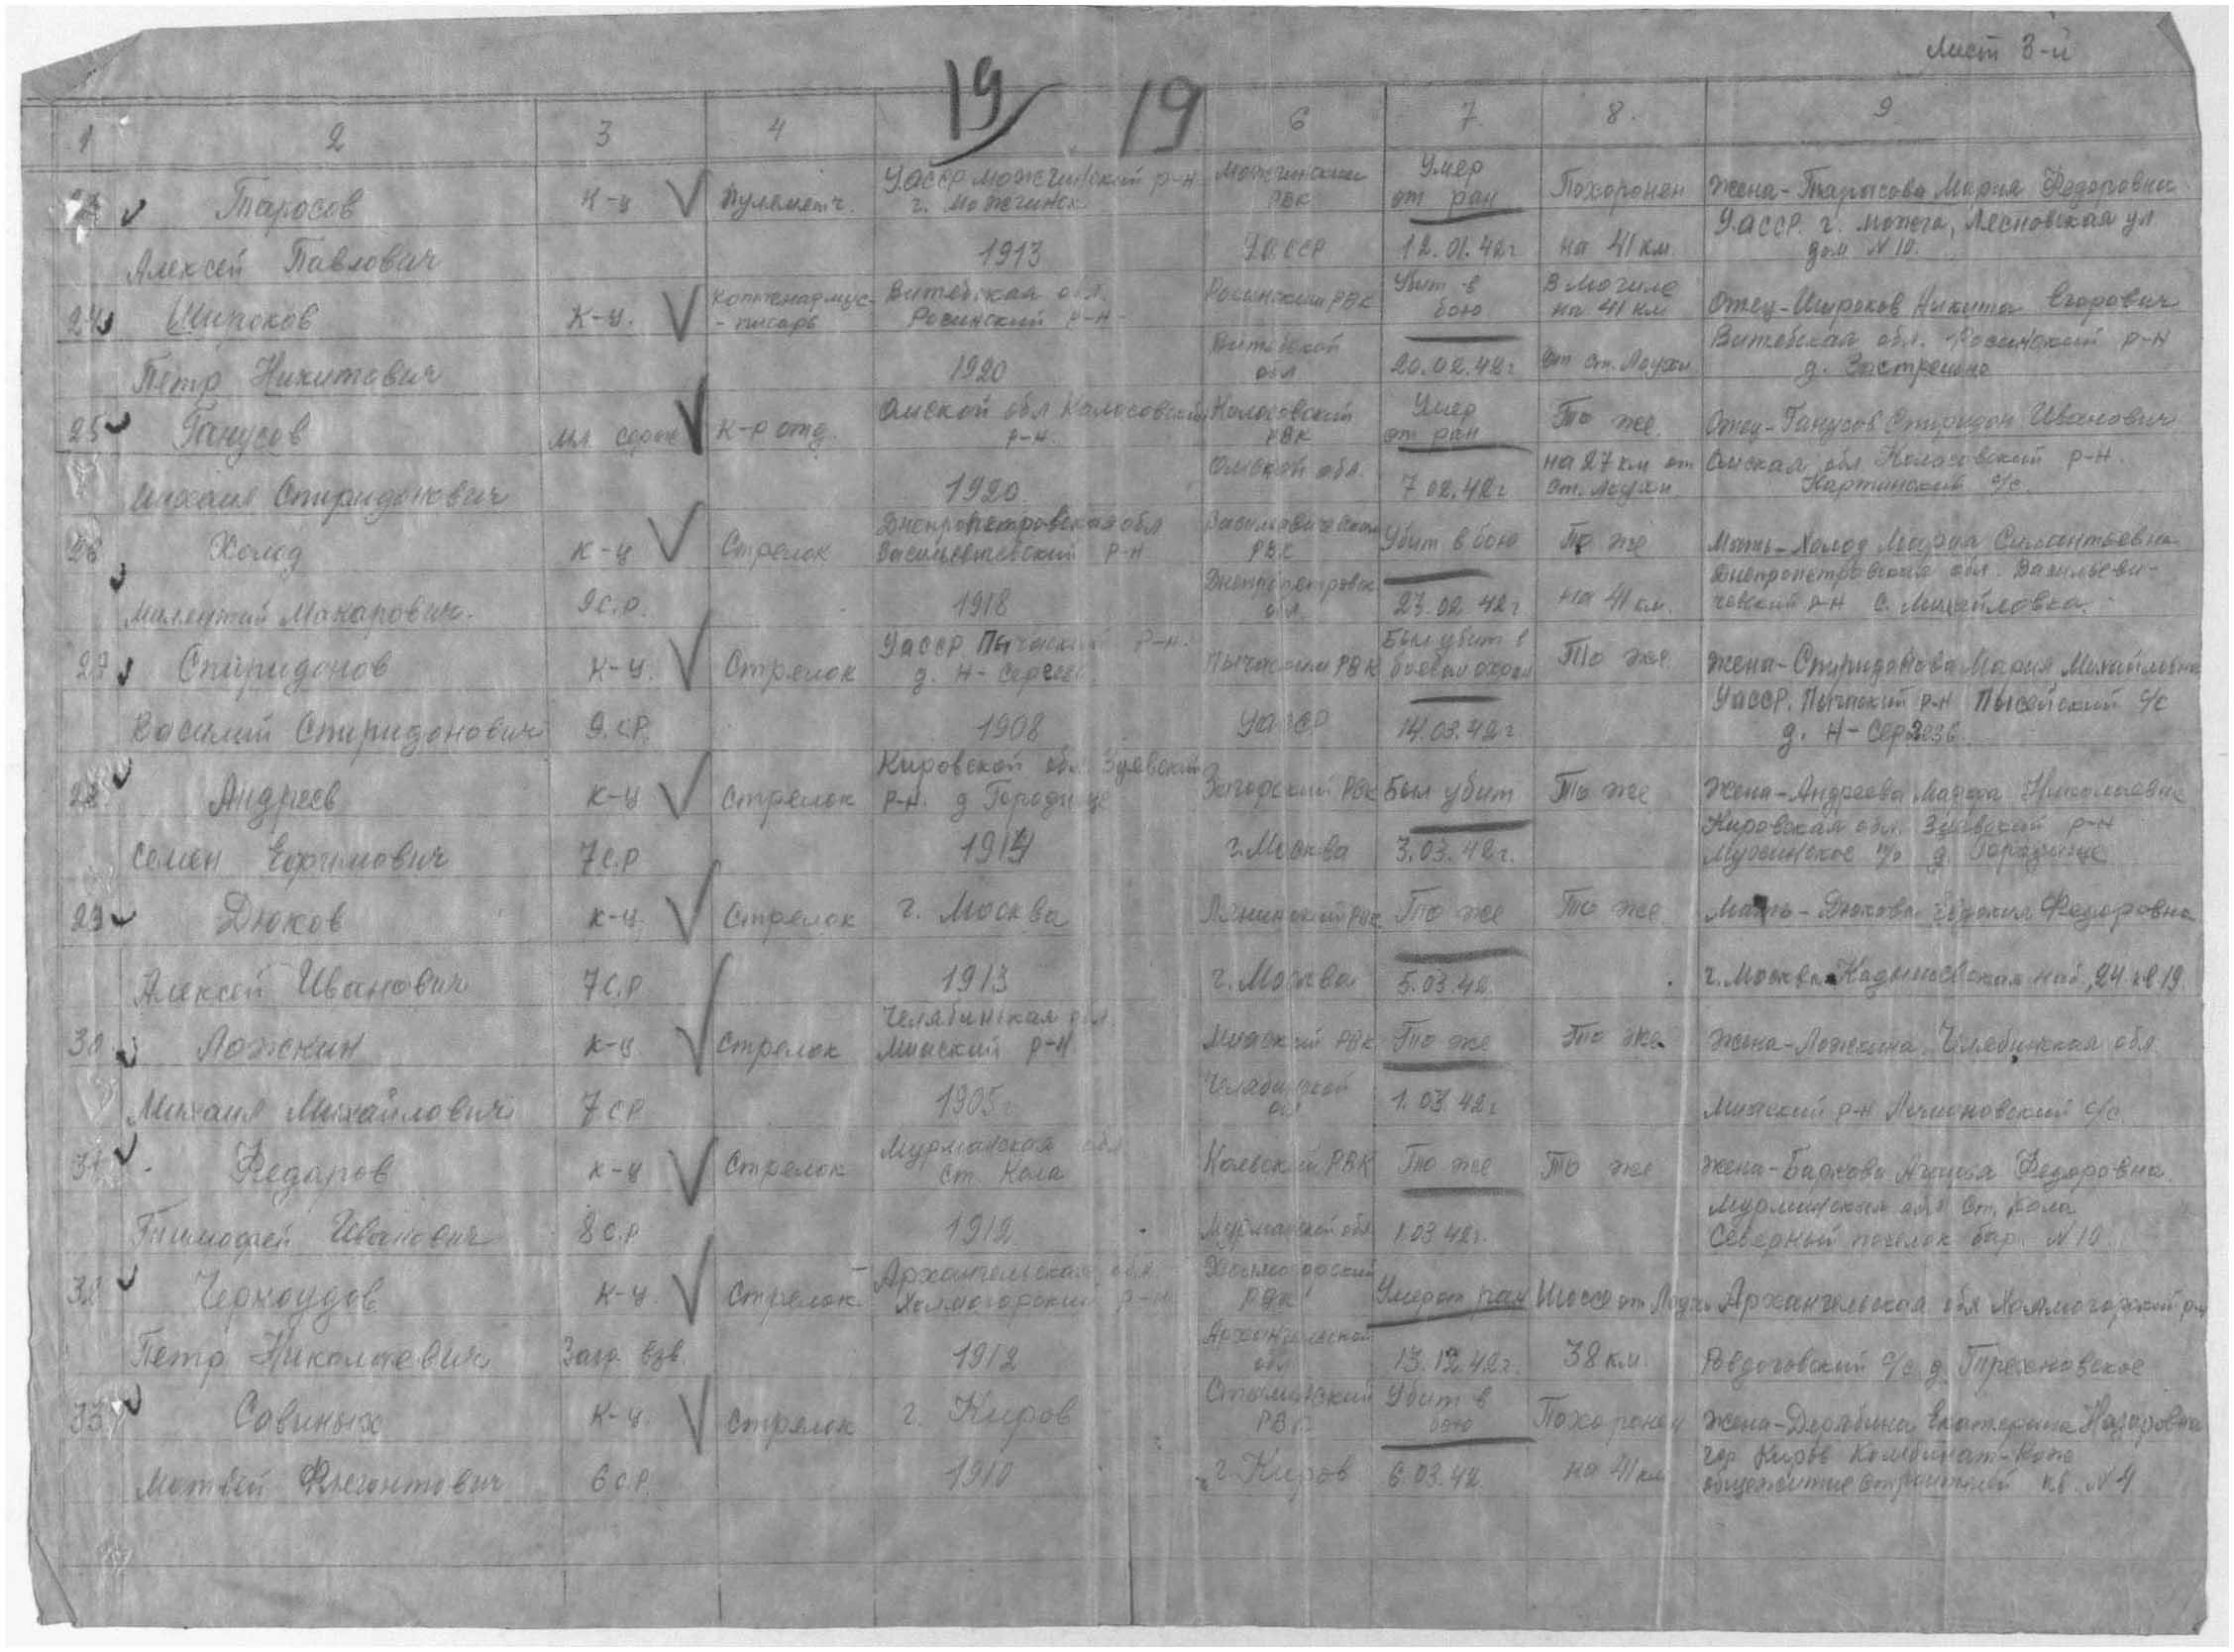 Лист 3-й
19 19
1 2 3 4 6 7. 8. 9
23 Тарасов К-ц Пулеметч. УАССР Можгинский р-н г. Можгинск Можгинский РВК Умер от ран Похоронен Жена-Тарасова Мария Федоровна
Алексей Павлович 1913 УАССР 12.01.42г на 41 км. УАССР. г. Можга, Лесновская ул. дом N 10.
24 Широков К-ц. - писарь Витебская обл. Росинский р-н Росинский РВК Убит в бою В могиле на 41 км Отец-Широков Никита Егорович
Петр Никитович 1920 Витебской обл 20.02.42г от ст. Лоухи Витебская обл. Росинский р-н д.
25 Ганусов мл. серж К-р отд. Омской обл Колосовский р-н. Колосовский РВК Умер от ран То же. Отец-Ганусов Спиридон Иванович
Михаил Спиридонович 1920 Омской обл. 7 02.42г на 27 км от ст. Лоухи Омская обл Колосовский р-н. с/с.
26 Холод К-ц Стрелок Днепропетровская обл Васильевичевский р-н РВК Убит в бою То же Мать-Холод Мария
Милентий Макарович. 9 с.р. 1918 Днепропетровск обл. 27.02 42г на 41 км. Днепропетровская обл. Васильевичевский р-н с. Михайловка.
27 Спиридонов К-ц. Стрелок УАССР Пычаский р-н. д. Н- Пычаский РВК Был убит в боевом охран То же Жена-Спиридонова Мария Михайловна
Василий Спиридонович 9.с.р. 1908 УАССР 14.03.42г УАССР. Пычаский р-н с/с д. Н-
28. Андреев К-ц Стрелок Кировской обл. Зуевский р-н. д Городище РВК Был убит То же Жена-Андреева Марфа Николаевна
Семен Ефимович 7 с.р 1914 г. Москва 3.03.42г. Кировская обл. Зуевский р-н д. Городище
29 Дюков К-ц. Стрелок г. Москва Ленинский РВК То же То же Мать-Дюкова Евдокия Федоровна
Алексей Иванович 7 с.р 1913 г. Москва 5.03.42. г. Москва Кадышевская наб., 24 кв 19.
30 Ложкин К-ц Стрелок Челябинская обл. Миасский р-н Миаский РВК То же То же Жена-Ложкина Челябинская обл
Михаил Михайлович 7 с р 1905г Челябинской обл 1.03.42г Миаский р-н с/с
31 Федаров К-ц Стрелок Мурманская обл ст. Кола Кольский РВК То же То же Жена-Баркова Федоровна.
Тимофей Иванович 8 с.р 1912 Мурманской обл 1.03 42г. Мурманская обл ст. Кола Северный поселок бар. N 10
32 Черноудов К-ц. Стрелок Архангельская обл Холмогорский р-н Холмогорский РВК Умер от ран Шоссе от Лоухи Архангельская обл Холмогорский р-н
Петр Николаевич Загр. взв. 1912 Архангельской обл 13.12.42г. 38 км. с/с. д.
33 Савиных К-ц. Стрелок г. Киров Сталинский РВК Убит в бою Похоронен Жена-Дерябина Екатерина
Матвей Флегонтович 6 с.р. 1910 г. Киров 6.03.42. на 41 км гор Киров Комбинат-Кож общежитие строителей кв. N 4